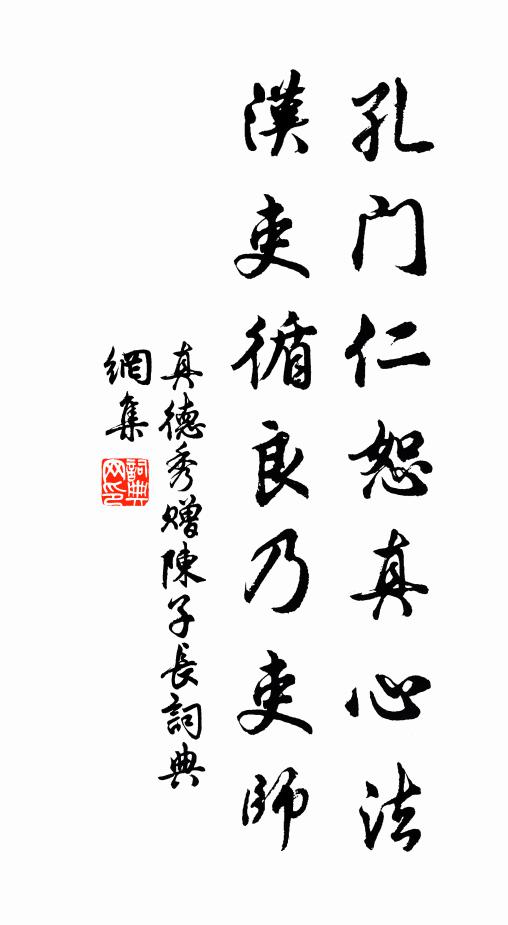 孔門仁恕真心法
漢吏循良乃吏師
真德秀贈陳子長詞典
網集
詞典
網印